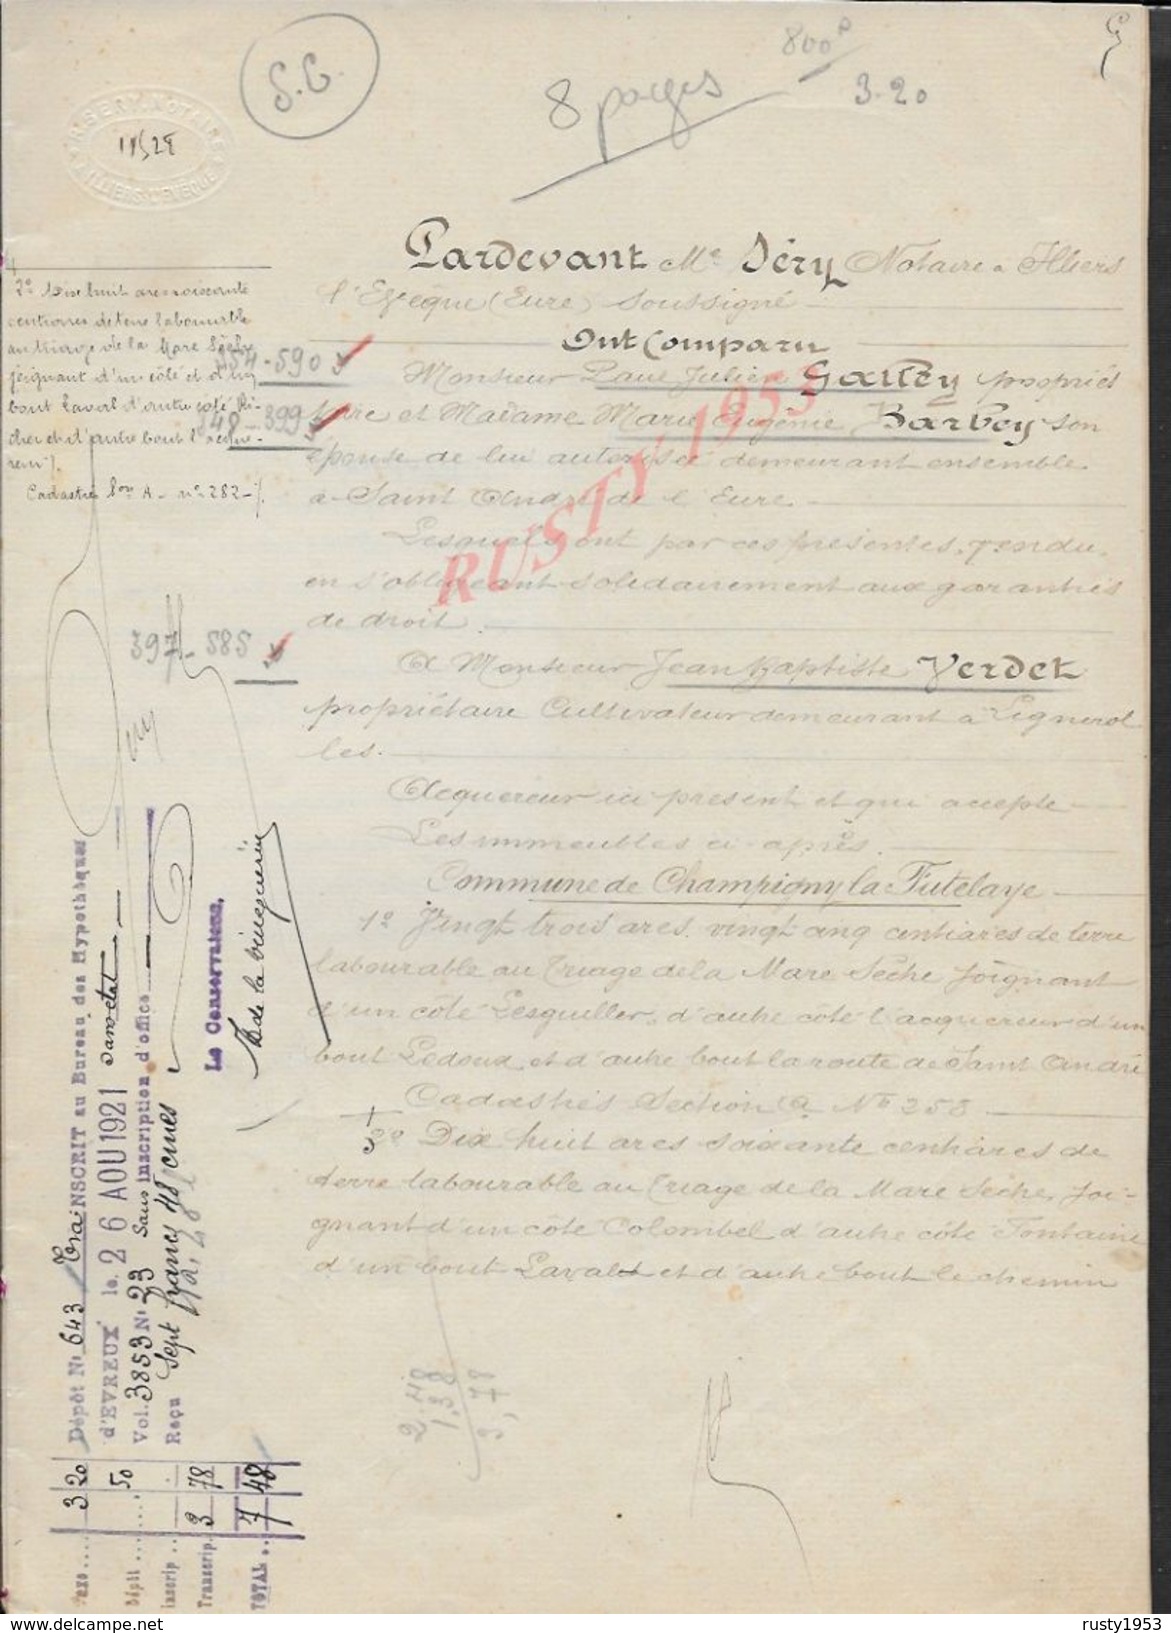 S.G.
8 pages
800
3.20
Pardevant Me Séry Notaire à Illiers
l'Evêque (Eure) soussigné
Ont Comparu
Monsieur Paul Julien Gallby propriét
taire et Madame Marie Eugénie Barbey son
épouse de lui autorisée demeurant ensemble
à Saint André de l'Eure.
Lesquels ont par ces présentes, vendu,
en s'obligeant solidairement aux garanties
de droit.
A Monsieur Jean Baptiste Verdet
propriétaire Cultivateur demeurant à Lignerol
les.
Acquereur ici présent et qui accepte
Les immeubles ci-après.
Commune de Champigny la Futelaye
1º Vingt trois ares, vingt cinq centiares de terre
labourable au Triage de la Mare Sèche joignant
d'un côté Lesguiller, d'autre côté l'acquereur d'un
bout Ledoux et d'autre bout la route de Saint André
Cadastrés Section A Nº 258
3º Dix huit ares soixante centiares de
terre labourable au Triage de la Mare Sèche, joi-
gnant d'un côté Colombel d'autre côté Fontaine
d'un bout Laval et d'autre bout le chemin
2º Dix huit ares soixante
centiares de terre labourable
au triage de la Mare Sèche
joignant d'un côté et d'un
bout Laval d'autre côté Ri-
cher et d'autre bout l'acqué-
reur
Cadastré Son A - nº 282
454-590
448-399
397-585
Dépôt Nº 643 TraNSCRIT au Bureau des Hypothèques
d'EVREUX le 26 AOU 1921
Vol. 3853 Nº 23 Sans inscription d'office
Reçu Sept francs 48 cmes
Le Conservateur,
Taxe .... 3 20
Dépôt ...... 50
Inscrip ..
Transcrip. 3 78
TOTAL .. 7 48
2.48
1.38
3,78
RUSTY 1953
www.delcampe.net
rusty1953